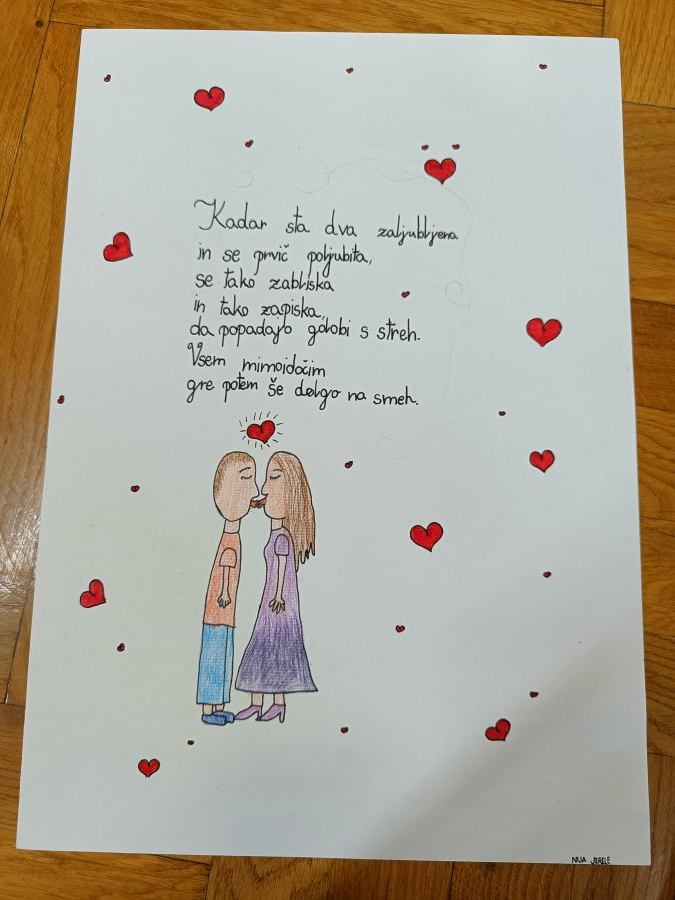 Kadar sta dva zaljubljena
in se prvič poljubita,
se tako zabliska
in tako zapiska,
da popadajo golobi s streh.
Vsem mimoidočim
gre potem še dolgo na smeh.
NIJA JERELE